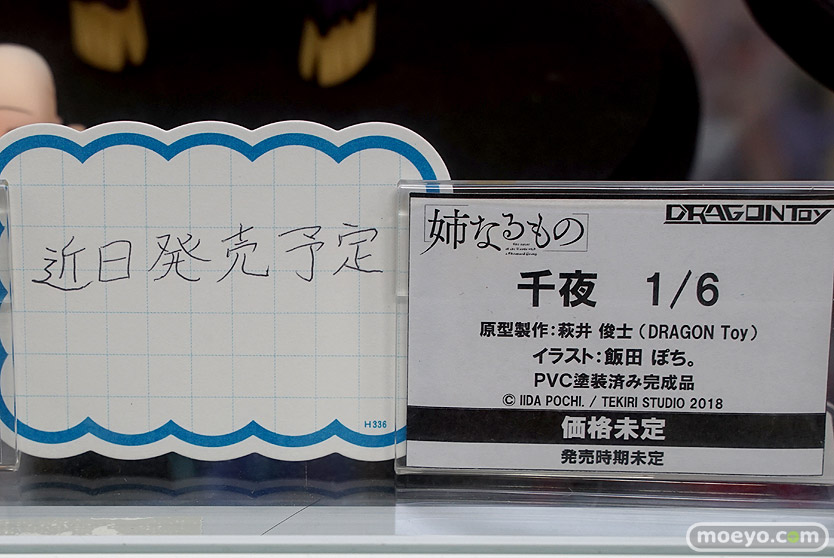 近日発売予定
H336
[姉なるもの]
DRAGONTOY
千夜 1/6
原型製作:萩井 俊士(DRAGON Toy)
イラスト:飯田 ぽち。
PVC塗装済み完成品
© IIDA POCHI. / TEKIRI STUDIO 2018
価格未定
発売時期未定
moeyo.com